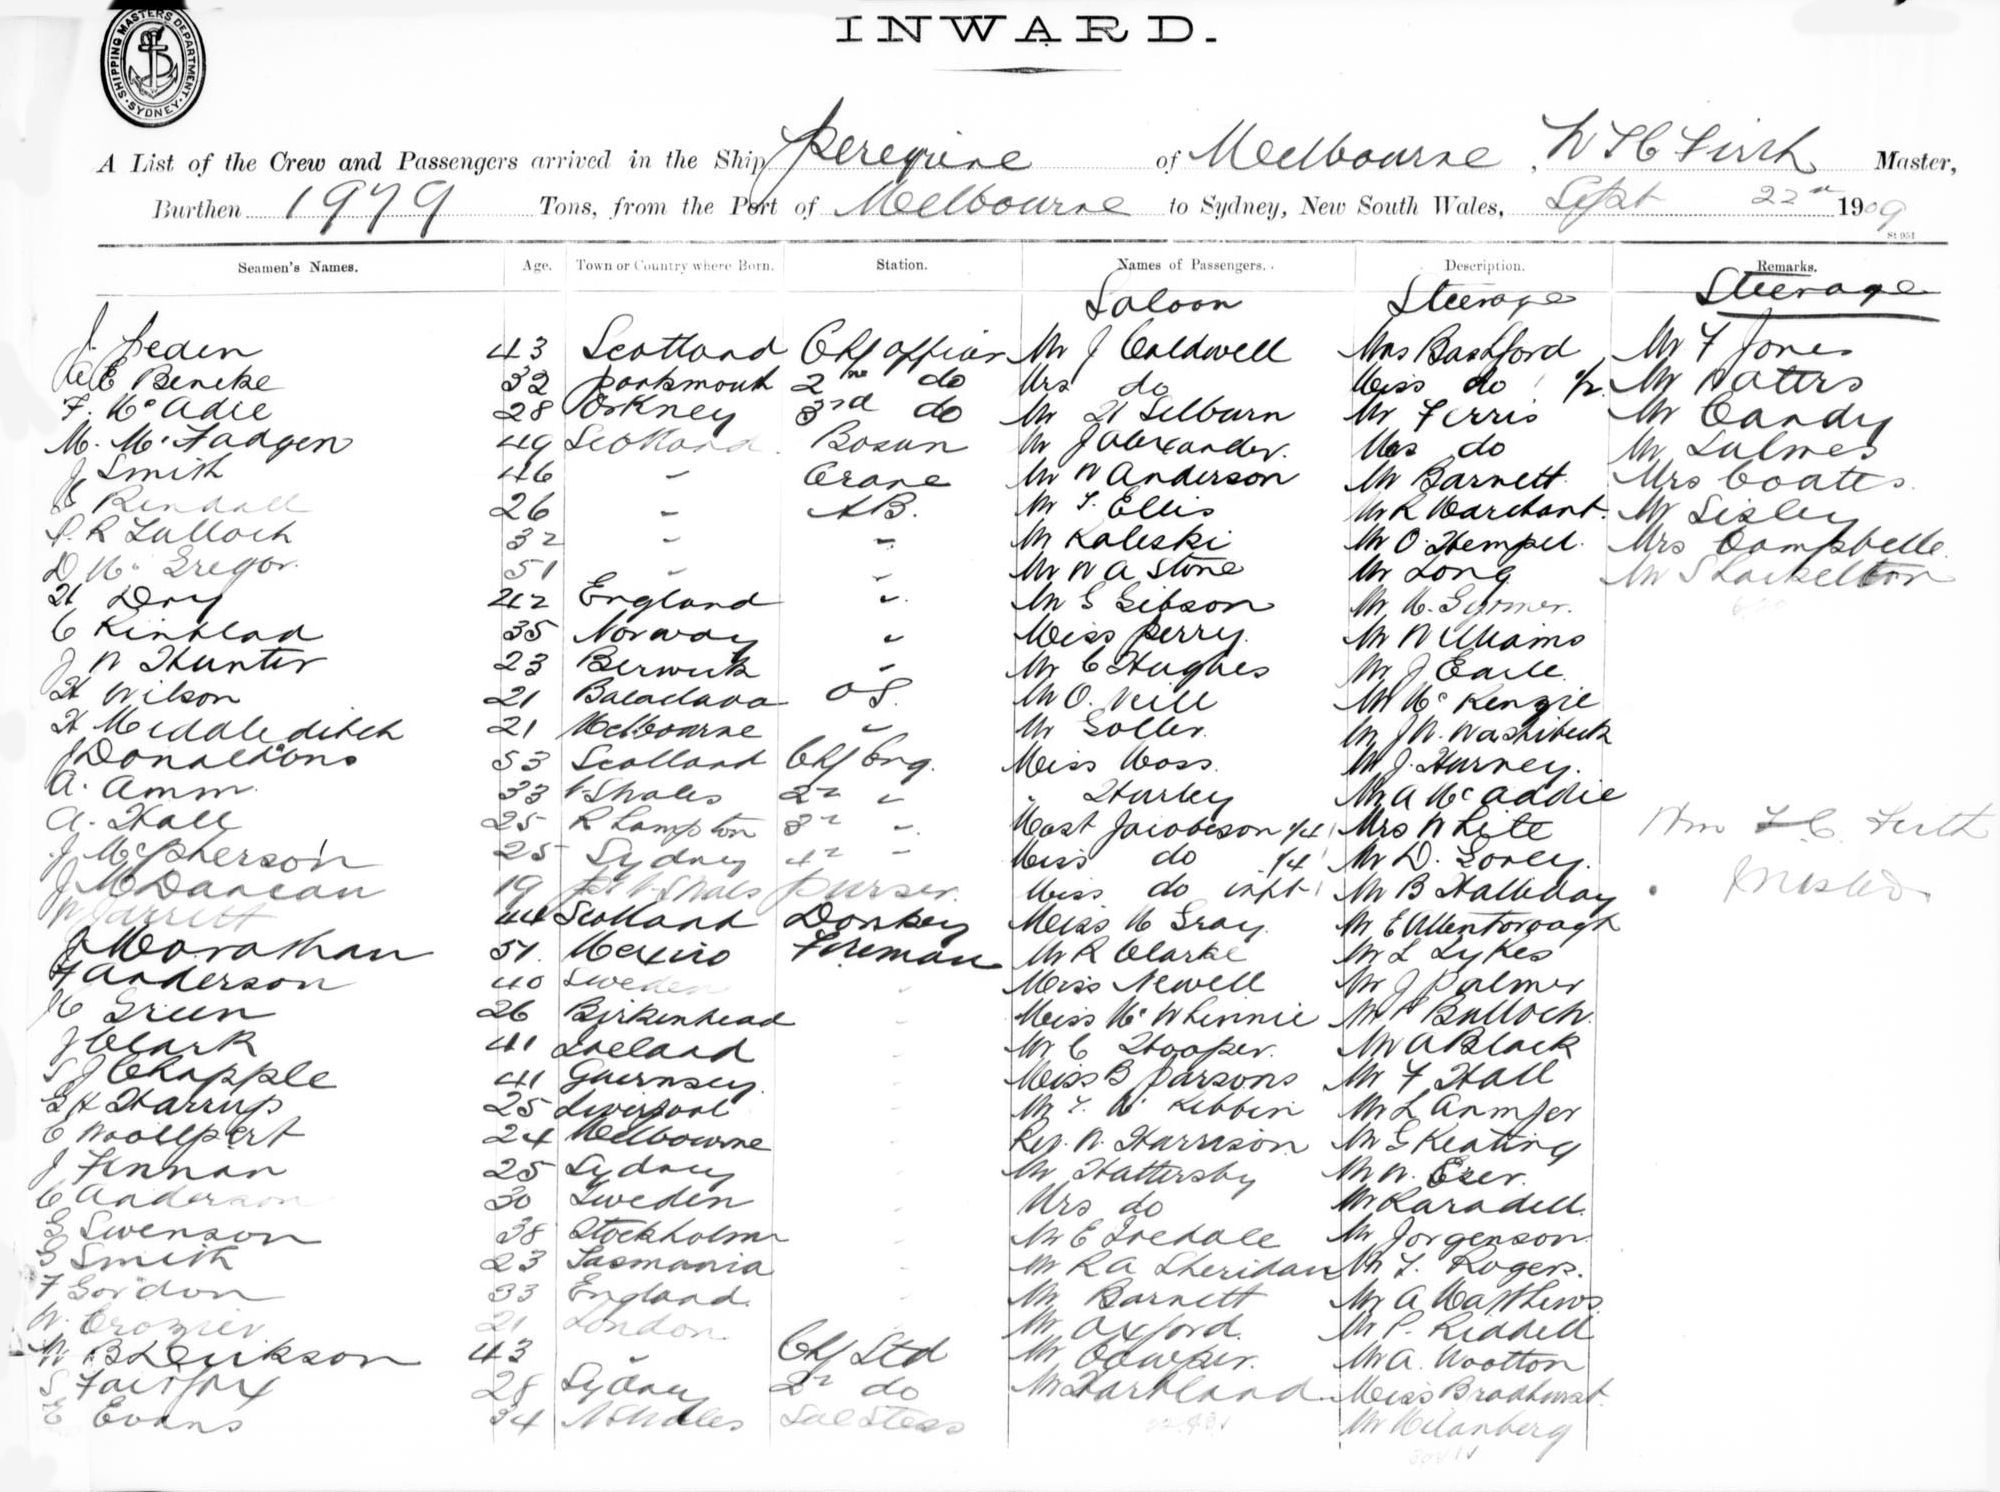 SHIPPING MASTERS DEPARTMENT
SYDNEY
INWARD.
A List of the Crew and Passengers arrived in the Ship Peregrine of Melbourne, W H C Firth Master,
Burthen 1979 Tons, from the Port of Melbourne to Sydney, New South Wales, Sept 22nd 1909
St 951
Seamen's Names. Age. Town or Country where Born. Station. Names of Passengers. Description. Remarks.
Saloon Steerage Steerage
J. Peden 43 Scotland Chf officer Mr J Caldwell Mrs Bashford Mr F Jones
Beneke 32 Portsmouth 2nd do Mrs do Miss do 1/2 Mr Watters
F. McAdie 28 Orkney 3rd do Mr H Selburn Mr Ferris Mr Candy
M. McFadgen 49 Scotland Bosun Mr J Alexander. Mrs do Mr Sulmes
J Smith 46 - Crane Mr W Anderson Mr Barnett Mrs Coates
Kendall 26 - AB. Mr F. Ellis Mr R Marchant. Mr Sisley
P. R Tulloch 32 - - Mr Kaleski Mr O. Hempel. Mrs Campbelle
D McGregor. 51 - - Mr W A Stone Mr Long Mr Shackelton
H Dry 42 England " Mr G Gibson Mr M. Gyrmer.
C Kinblad 35 Norway " Miss Perry. Mr Williams
J W Hunter 23 Berwick - Mr C Hughes Mr J Earle.
H Wilson 21 Balaclava OS. Mr O. Neill Mr McKenzie
H Middleditch 21 Melbourne " Mr Goller. Mr J W. Washibeck
J Donaldsons 53 Scotland Chf Eng. Miss Moss. Mr J. Hurney.
A. Amm. 33 N S Wales 2nd " " Hurley Mr A McAddie
A. Hall 25 R Hampton 3rd " Mast Jacobson 1/4 Mrs White
J McPherson 25 Sydney 4th - Miss do 1/4 Mr D. Gorey.
J McDuncan 19 N S Wales Purser. Miss do inft Mr B Halliday
W Jarrett 44 Scotland Donkey Miss M Gray. Mr E Attenborough
J Monathan 51. Mexico Fireman Mr R Clarke Mr L Lykes
F Anderson 40 Sweden Miss Newell Mr J Palmer
H Green 26 Birkenhead Miss McWhinnie Mr P Bulloch.
J Clark 41 Ireland Mr C Hooper. Mr A Black
S J Chapple 41 Guernsey. Miss B Parsons Mr F Hall
G H Harrup 25 Liverpool Mr F. McKibbin Mr L Anmfer
C Woollpert 24 Melbourne Rev. W. Harrison Mr G Keating
J Finnan 25 Sydney Mr Hattersby Mr W. Eser.
C Anderson 30 Sweden Mrs do Mr Karadell.
G Swenson 38 Stockholm Mr E Iredale Mr Jorgenson.
G Smith 23 Tasmania Mr R A Sheridan Mr F. Rogers.
F Gordon 33 England. Mr Barnett Mr A Matthews.
W. Crozier 21 London. Mr Oxford. Mr P. Riddell
W B Derikson 43 " Chf Std Mr Cowper. Mr A. Wootton
S Fairfax 28 Sydney 2nd do Mr Harkland. Miss Bradhurst.
E Evans 34 N S Wales Sal Stess Mr Milanberg
Wm H C Firth
Master.